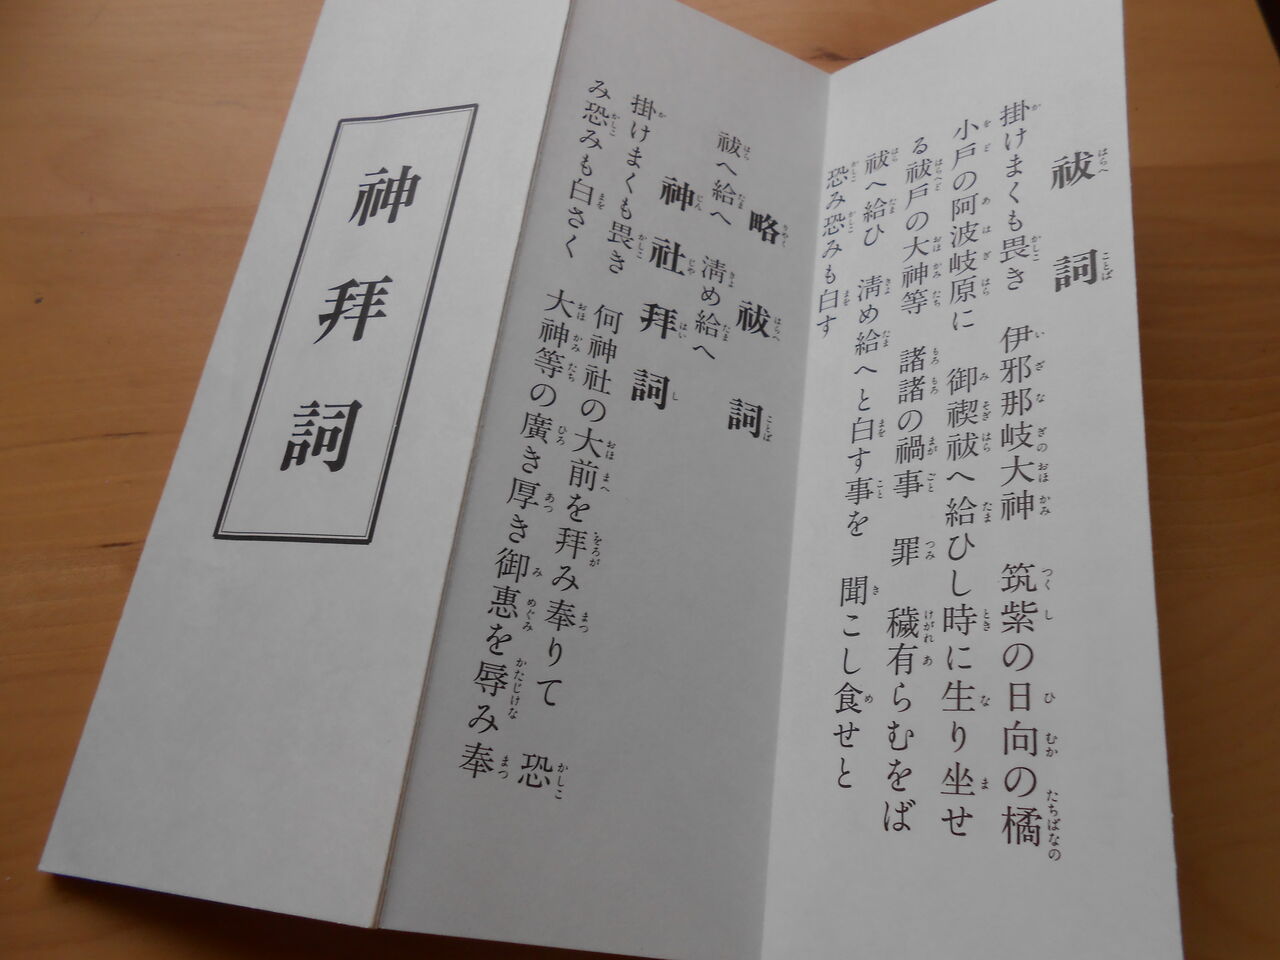 神拝詞
祓詞
掛けまくも畏き 伊邪那岐大神 筑紫の日向の橘
小戸の阿波岐原に 御禊祓へ給ひし時に生り坐せ
る祓戸の大神等 諸諸の禍事 罪 穢有らむをば
祓へ給ひ 淸め給へと白す事を 聞こし食せと
恐み恐みも白す
略祓詞
祓へ給へ 淸め給へ
神社拝詞
掛けまくも畏き 何神社の大前を拝み奉りて 恐
み恐みも白さく 大神等の廣き厚き御惠を辱み奉